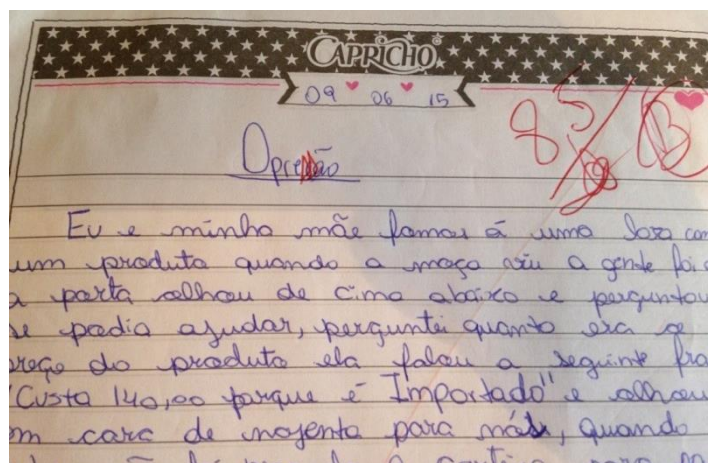 CAPRICHO
09 06 15
8,5/10 B
Opressão
Eu e minha mãe fomos á uma loza com
um produto quando a moça viu a gente foi
a porta olhou de cima abaixo e perguntou
se podia ajudar, perguntei quanto era o
preço do produto ela falou a seguinte fra
"Custa 140,00 porque é Importado" e olhou
em cara de nojenta para nós, quando